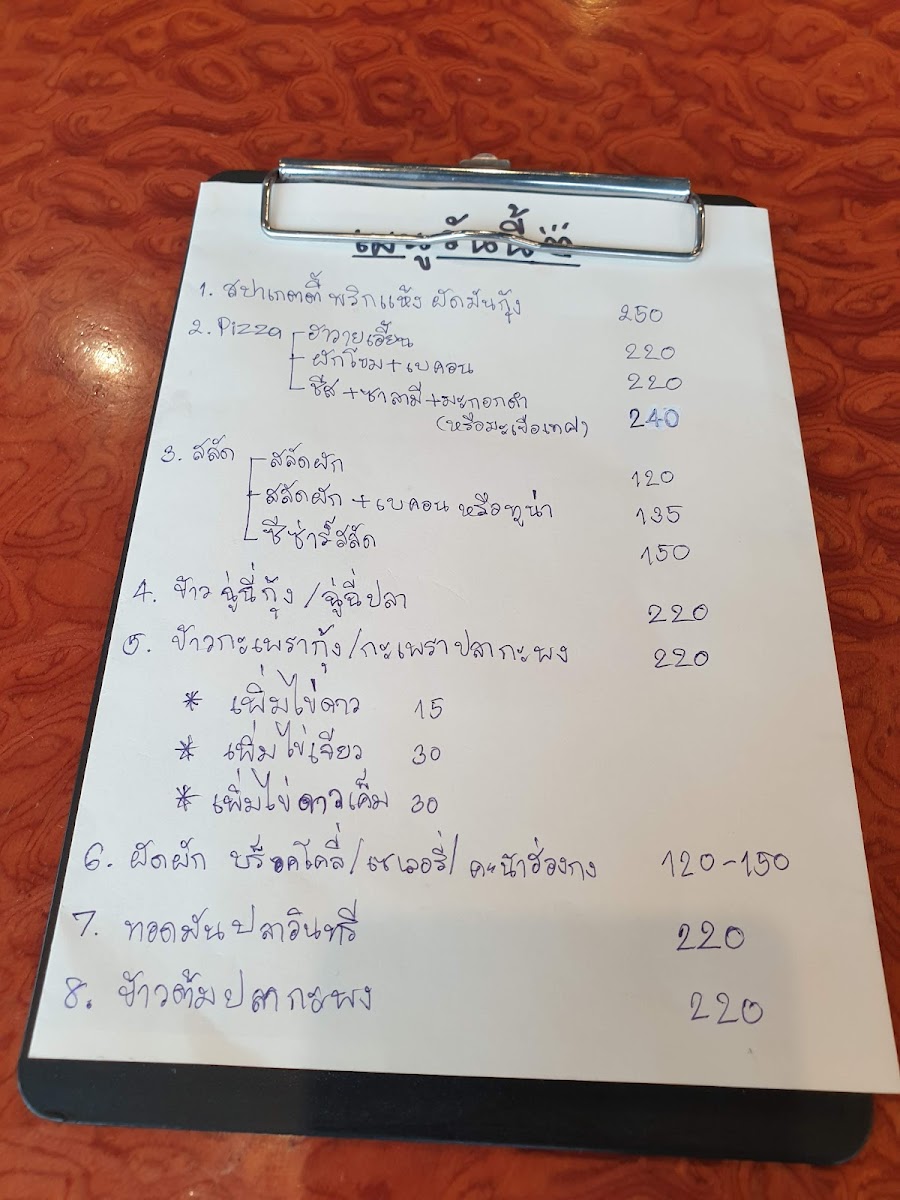 เมนูวันนี้
1. สปาเกตตี้ พริกแห้ง ผัดมันกุ้ง 250
2. Pizza ฮาวายเอี้ยน 220
ผักโขม + เบคอน 220
ชีส + ซาลามี + มะกอกดำ 240
(หรือมะเขือเทศ)
3. สลัด สลัดผัก 120
สลัดผัก + เบคอน หรือทูน่า 135
ซีซ่าร์สลัด 150
4. ข้าว ฉู่ฉี่กุ้ง / ฉู่ฉี่ปลา 220
5. ข้าวกะเพรากุ้ง / กะเพราปลากะพง 220
* เพิ่มไข่ดาว 15
* เพิ่มไข่เจียว 30
* เพิ่มไข่ดาวเค็ม 30
6. ผัดผัก บร็อคโคลี่ / เซเลอรี่ / คะน้าฮ่องกง 120-150
7. ทอดมันปลาอินทรี 220
8. ข้าวต้มปลากะพง 220